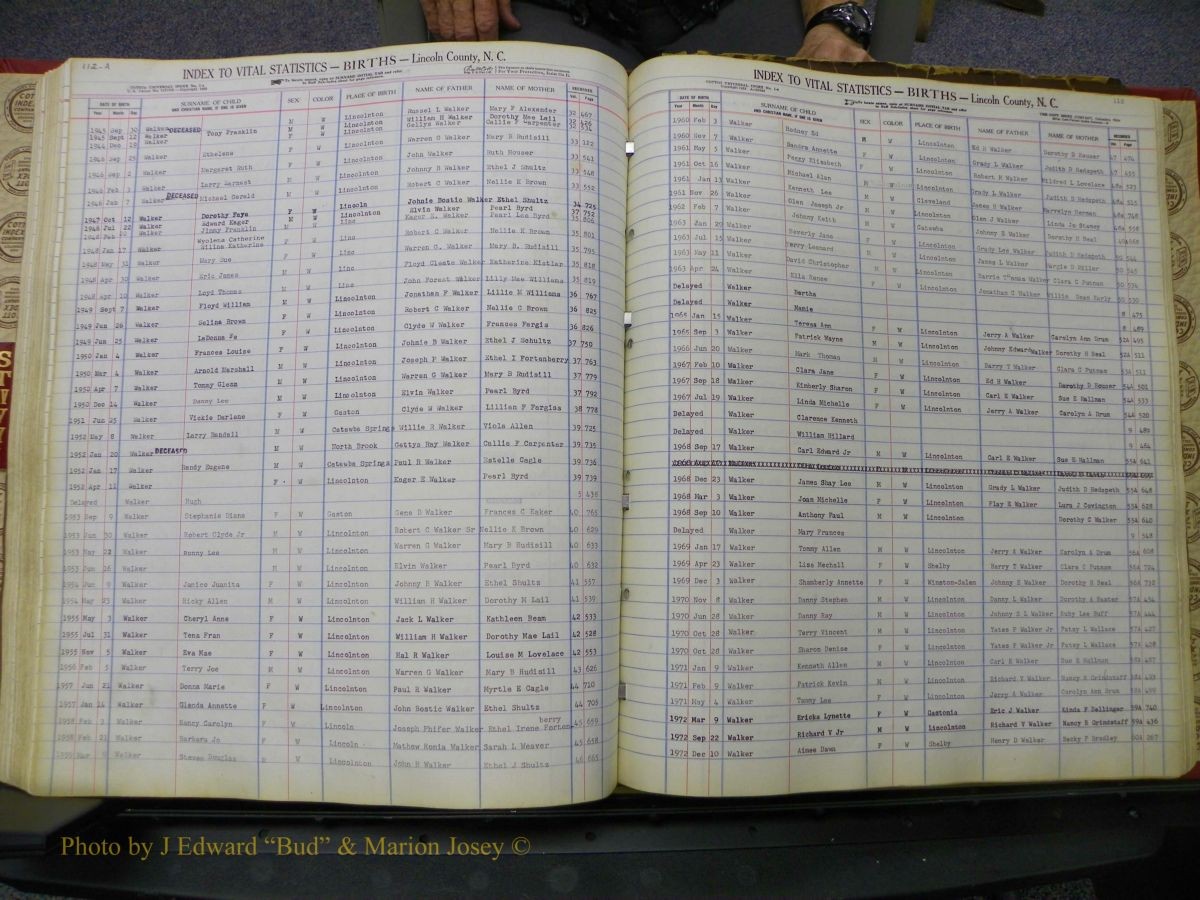 112-A
INDEX TO VITAL STATISTICS — BIRTHS — Lincoln County, N. C.
DATE OF BIRTH SURNAME OF CHILD SEX COLOR PLACE OF BIRTH NAME OF FATHER NAME OF MOTHER RECORDED
Year Month Day AND CHRISTIAN NAME, IF ONE IS GIVEN Vol. Page
1945 Sep 30 Walker DECEASED M W Lincolnton Russel L Walker Mary F Alexander 32 467
1945 Sept 12 Walker Tony Franklin M W Lincolnton William H Walker Dorothy Mae Lail 32 426
1944 Dec 18 Walker Lincolnton Gettys Walker Callie F Carpenter 32 334
1946 Sep 25 Walker Ethelene F W Lincolnton Warren G Walker Mary B Rudisill 33 122
1946 Sep 2 Walker Margaret Ruth F W Lincolnton John Walker Ruth Houser 33 541
1946 Feb 3 Walker Larry Earnest M W Lincolnton Johnny B Walker Ethel J Shultz 33 548
1946 Jan 7 Walker DECEASED Michael Gerald M W Lincolnton Robert C Walker Nellie K Brown 33 552
Lincoln Johnie Bostic Walker Ethel Shultz 34 725
1947 Oct 12 Walker Dorothy Faye F W Lincolnton Elvin Walker Pearl Byrd 37 752
1948 Jul 22 Walker Edward Eager M W Linc Eager E. Walker Pearl Lee Byrd 35 806
Walker Jimmy Franklin
1948 Jan 17 Walker Wyolene Catherine F W Linc Robert C Walker Nellie K Brown 35 801
Wilma Katherine
1948 May 31 Walker Mary Sue F W Linc Warren G. Walker Mary B. Rudisill 35 795
Walker Eric Jones M W Linc Floyd Cleate Walker Katherine Kistler 35 818
1948 Apr 10 Walker Loyd Thomas M W Linc John Forest Walker Lilly Mae Williams 35 819
1949 Sept 7 Walker Floyd William M W Lincolnton Jonathan F Walker Lillie M Williams 36 767
1949 Jun 26 Walker Selina Brown F W Lincolnton Robert C Walker Nellie C Brown 36 825
1949 Jun 25 Walker LaDonna Fe F W Lincolnton Clyde W Walker Frances Fergis 36 826
1950 Jan 4 Walker Frances Louise F W Lincolnton Johnie B Walker Ethel J Schultz 37 750
1950 Mar 4 Walker Arnold Marshall M W Lincolnton Joseph P Walker Ethel I Fortenberry 37 763
1950 Apr 7 Walker Tommy Glenn M W Lincolnton Warren G Walker Mary B Rudisill 37 779
1950 Dec 14 Walker Danny Lee M W Lincolnton Elvin Walker Pearl Byrd 37 792
1951 Jun 25 Walker Vickie Darlene F W Gaston Clyde W Walker Lillian F Fergiss 38 778
1952 May 8 Walker Larry Randall M W Catawba Springs Willie R Walker Viola Allen 39 725
1952 Jan 20 Walker DECEASED M W North Brook Gettys Ray Walker Callie F Carpenter 39 735
1952 Jan 17 Walker Randy Eugene M W Catawba Springs Paul R Walker Estelle Cagle 39 736
1952 Apr 11 Walker F W Lincolnton Eager E Walker Pearl Byrd 39 739
Delayed Walker Hugh 5 438
1953 Sep 9 Walker Stephanie Diane F W Gaston Gene D Walker Frances C Eaker 40 765
1953 Jun 30 Walker Robert Clyde Jr M W Lincolnton Robert C Walker Sr Nellie K Brown 40 629
1953 May 22 Walker Ronny Lee M W Lincolnton Warren G Walker Mary B Rudisill 40 633
1953 Jun 26 Walker M W Lincolnton Elvin Walker Pearl Byrd 40 632
1954 Jun 9 Walker Janice Juanita F W Lincolnton Johnny B Walker Ethel Shultz 41 557
1954 May 23 Walker Ricky Allen M W Lincolnton William H Walker Dorothy M Lail 41 539
1955 May 3 Walker Cheryl Anne F W Lincolnton Jack L Walker Kathleen Beam 42 533
1955 Jul 31 Walker Tena Fran F W Lincolnton William H Walker Dorothy Mae Lail 42 528
1955 Nov 5 Walker Eva Mae F W Lincolnton Hal R Walker Louise M Lovelace 42 553
1956 Feb 5 Walker Terry Joe M W Lincolnton Warren G Walker Mary B Rudisill 43 626
1957 Jun 21 Walker Donna Marie F W Lincolnton Paul R Walker Myrtle E Cagle 44 710
1957 Jan 14 Walker Glenda Annette F W Lincolnton John Bostic Walker Ethel Shultz 44 705
1958 Feb 3 Walker Nancy Carolyn F W Lincoln Joseph Phifer Walker Ethel Irene Fortenberry 45 659
1958 Feb 21 Walker Barbara Jo F W Lincoln Mathew Ronia Walker Sarah L Weaver 45 658
1959 Mar 9 Walker Steven Douglas M W Lincolnton John B Walker Ethel J Shultz 46 665
INDEX TO VITAL STATISTICS — BIRTHS — Lincoln County, N. C.
DATE OF BIRTH SURNAME OF CHILD SEX COLOR PLACE OF BIRTH NAME OF FATHER NAME OF MOTHER RECORDED
Year Month Day AND CHRISTIAN NAME, IF ONE IS GIVEN Vol. Page
1960 Feb 3 Walker Rodney Ed M W Lincolnton Ed H Walker Dorothy D Houser 47 474
1960 Nov 7 Walker Sandra Annette F W Lincolnton Grady L Walker Judith D Hedspeth 47 495
1961 May 5 Walker Peggy Elizabeth F W Lincolnton Robert M Walker Mildred L Lovelace 48a 523
1961 Oct 16 Walker Michael Alan M Lincolnton Grady L Walker Judith D Hedspeth 48a 515
1961 Jan 13 Walker Kenneth Lee M W Cleveland James B Walker Marvelyn Herman 48a 748
1961 Nov 26 Walker Glen Joseph Jr M W Lincolnton Glen J Walker Linda Jo Stamey 48a 558
1962 Feb 7 Walker Johnny Keith M W Catawba Johnny E Walker Dorothy H Beal 49a668
1963 Jan 29 Walker Beverly Jane F W Lincolnton Grady Lee Walker Judith D Hedspeth 50 544
1963 Jul 15 Walker Perry Leonard M W Lincolnton James L Walker Margie D Miller 50 545
1963 May 11 Walker David Christopher M W Lincolnton Harrie Thomas Walker Clara C Putnam 50 534
1963 Apr 24 Walker Ella Renee F W Lincolnton Jonathan C Walker Willie Dean Early 50 530
Delayed Walker Bertha 8 475
Delayed Walker Mamie 8 489
1965 Jan 15 Walker Teresa Ann F W Lincolnton Jerry A Walker Carolyn Ann Drum 52A 495
1965 Sep 3 Walker Patrick Wayne M W Lincolnton Johnny Edward Walker Dorothy H Beal 52A 511
1966 Jun 20 Walker Mark Thomas M W Lincolnton Harry T Walker Clara C Putnam 53A 511
1967 Feb 10 Walker Clara Jane F W Lincolnton Ed H Walker Dorothy D Houser 54A 501
1967 Sep 18 Walker Kimberly Sharon F W Lincolnton Carl E Walker Sue E Hallman 54A 533
1967 Jul 19 Walker Linda Michelle F W Lincolnton Jerry A Walker Carolyn A Drum 54A 520
Delayed Walker Clarence Kenneth 9 480
Delayed Walker William Hillard 9 464
1968 Sep 17 Walker Carl Edward Jr M W Lincolnton Carl E Walker Sue E Hallman 55A 641
1968 Dec 23 Walker James Shay Lee M W Lincolnton Grady L Walker Judith D Hedspeth 55A 648
1968 Mar 3 Walker Joan Michelle F W Lincolnton Flay E Walker Lura J Covington 55A 628
1968 Sep 10 Walker Anthony Paul M W Lincolnton Dorothy C Walker 55A 640
Delayed Walker Mary Frances 9 548
1969 Jan 17 Walker Tommy Allen M W Lincolnton Jerry A Walker Carolyn A Drum 56A 608
1969 Apr 23 Walker Lisa Mechell F W Shelby Harry T Walker Clara C Putnam 56A 724
1969 Dec 3 Walker Shamberly Annette F W Winston-Salem Johnny E Walker Dorothy H Beal 56A 732
1970 Nov 8 Walker Danny Stephen M W Lincolnton Danny L Walker Dorothy A Baxter 57A 454
1970 Jun 28 Walker Danny Ray M W Lincolnton Johnny S L Walker Ruby Lee Huff 57A 444
1970 Oct 28 Walker Terry Vincent M W Lincolnton Yates P Walker Jr Patsy L Wallace 57A 427
1970 Oct 28 Walker Sharon Denise F W Lincolnton Yates P Walker Jr Patsy L Wallace 57A 428
1971 Jan 9 Walker Kenneth Allen M W Lincolnton Carl E Walker Sue E Hallman 58A 487
1971 Feb 9 Walker Patrick Kevin M W Lincolnton Richard V Walker Nancy B Grindstaff 58A 493
1971 May 4 Walker Tammy Lee F W Lincolnton Jerry A Walker Carolyn Ann Drum 58A 499
1972 Mar 9 Walker Ericka Lynette F W Gastonia Eric J Walker Linda F Dellinger 59A 740
1972 Sep 22 Walker Richard V Jr M W Lincolnton Richard V Walker Nancy B Grindstaff 59A 436
1972 Dec 10 Walker Aimee Dawn F W Shelby Henry D Walker Becky P Bradley 60A 267
Photo by J Edward “Bud” & Marion Josey ©